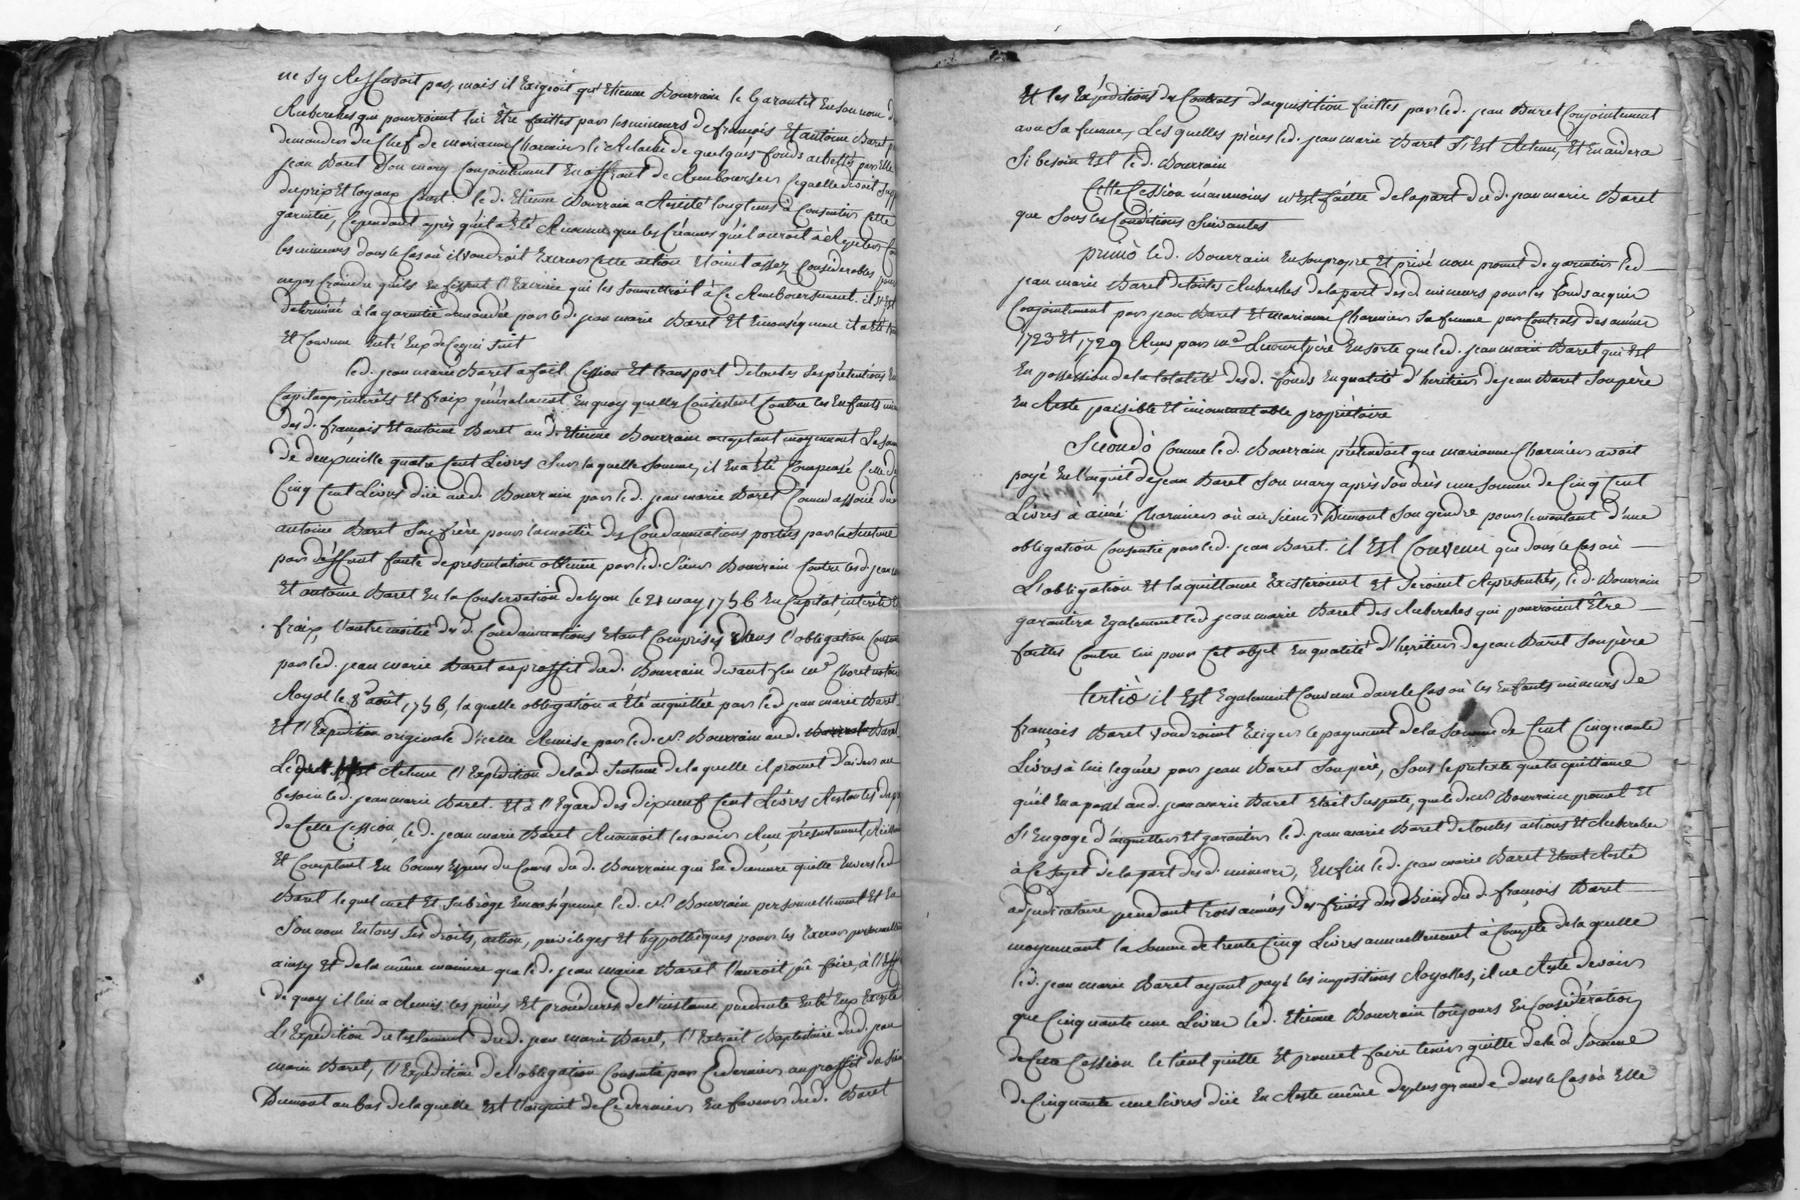 ne s'y Reffusoit pas, mais il Exigeoit qu'Etienne Bourrain le Garantit En son nom d
Recherches que pourroient lui Être faittes par les mineurs de françois Et antoine Baret p
demander du Chef de marianne Charmier le Relaché de quelques fonds achettés par Elle
jean Baret son mary Conjointement En offrant de Rembourser Ce quelle devoit supp
du prix Et loyaux Cout. led. Etienne Bourrain a Resisté longtems à Consentir Cette
garantie, Cependant après qu'il a Été Reconnu que les Créances qu'il auroit à Repeter Co
les mineurs dans le Cas où il voudroit Exercer Cette action Etoient assez Considerables pour
ne pas Craindre qu'ils En fissent l'Exercice qui les soumettroit à Ce Remboursement. il s'Est
determiné à la garantie demandée par led. jean marie Baret Et En conséquence il a Été tr
Et Convenu Entr'Eux de Ce qui suit
led. jean marie Baret a fait Cession Et transport de toutes ses prétentions En
Capitaux, intérêts Et fraix généralement En quoy quelles Consistent Contre les Enfants min
des d. françois Et antoine Baret aud. Etienne Bourrain acceptant moyennant la som
de deux mille quatre Cent Livres sur laquelle somme, il En a Été Compensé Celle de
Cinq Cent Livres düe aud. Bourrain par led. jean marie Baret Comme associé dud
antoine Baret son frère pour la moitié des Condamnations portées par la sentence
par deffaut faute de présentation obtenue par led. sieur Bourrain Contre lesd. jean m
Et antoine Baret En la Conservation de Lyon le 21 may 1756 En Capital, intérêts Et
fraix, l'autre moitié des d. Condamnations Etant Comprises dans l'obligation Consen
par led. jean marie Baret au proffit dud. Bourrain devant feu me. Choret notaire
Royal le 8e août 1756, laquelle obligation a Été acquittée par led. jean marie Baret
Et l'Expédition originale d'icelle Remise par led. sr. Bourrain aud. Baret
Retenu l'Expédition de lad. sentence de laquelle il promet d'aider au
besoin led. jean marie Baret. Et à l'Egard des dix neuf Cent Livres Restantes du pr
de Cette Cession, led. jean marie Baret Reconnoit les avoir Reçu présentement, Réellem
Et Comptant En bonnes Espèces du Cours dud. Bourrain qui En demeure quitte Envers led
Baret lequel met Et subroge En conséquence led. sr. Bourrain personnellement Et En
son nom En tous ses droits, action, privileges Et hypothèques pour les Exercer personnelle
ainsy Et de la même manière que led. jean marie Baret l'auroit pû faire, à l'Eff
de quoy il lui a Remis les pièces Et procédures de l'instance pendante Entr'Eux Ensemble
L'Expédition du testament dud. jean marie Baret, l'Extrait Baptistaire dud. jean
marie Baret, l'Expédition de l'obligation Consentie par Ce dernier au proffit du sieur
Dumont au bas de laquelle Est l'acquit de Ce dernier En faveur dud. Baret
Et les Expéditions des Contrats d'acquisition faittes par led. jean Baret Conjointement
avec sa femme, Lesquelles pièces led. jean marie Baret s'Est Retenu, Et En aidera
si besoin Est led. Bourrain
Cette Cession néanmoins n'Est faitte de la part dud. jean marie Baret
que sous les Conditions suivantes
primò led. Bourrain En son propre Et privé nom promet de garantir led
jean marie Baret de toutes Recherches de la part des d. mineurs pour les fonds acquis
Conjointement par jean Baret Et marianne Charmier sa femme par Contrats des années
1723 Et 1729 Reçus par me. père En sorte que led. jean marie Baret qui Est
En possession de la totalité des d. fonds En qualité d'heritier de jean Baret son père
En Reste paisible Et incommutable propriétaire
Secundò Comme led. Bourrain prétendoit que marianne Charmier avoit
payé En l'acquit de jean Baret son mary après son decès une somme de Cinq Cent
Livres à aimé Charmier où au sieur Dumont son gendre pour le montant d'une
obligation Consentie par led. jean Baret. il Est Convenu que dans le Cas où
L'obligation Et la quittance Existeroient Et seroient Representées, led. Bourrain
garantira Egalement led jean marie Baret des Recherches qui pourroient Être
faittes Contre lui pour Cet objet En qualité d'heritier de jean Baret son père
tertiò il Est Egalement Convenu dans le Cas où les Enfants mineurs de
françois Baret voudroient Exiger le payement de la somme de Cent Cinquante
Livres à lui leguées par jean Baret son père, sous le pretexte que la quittance
qu'il En a passé aud. jean marie Baret Etoit suspecte, que led. sr. Bourrain promet Et
s'Engage d'acquitter Et garantir led. jean marie Baret de toutes actions Et Recherches
à Ce sujet de la part des d. mineurs, Enfin led. jean marie Baret Etant Resté
adjudicataire pendant trois années des fruits des Biens dud. françois Baret
moyennant la somme de trente Cinq Livres annuellement à Compte de laquelle
led. jean marie Baret ayant payé les impositions Royalles, il ne Reste devoir
que Cinquante une Livres led. Etienne Bourrain toujours En Considération
de Cette Cession le tient quitte Et promet faire tenir quitte de la d. somme
de Cinquante une livres düe En Reste même de plus grande dans le Cas où Elle